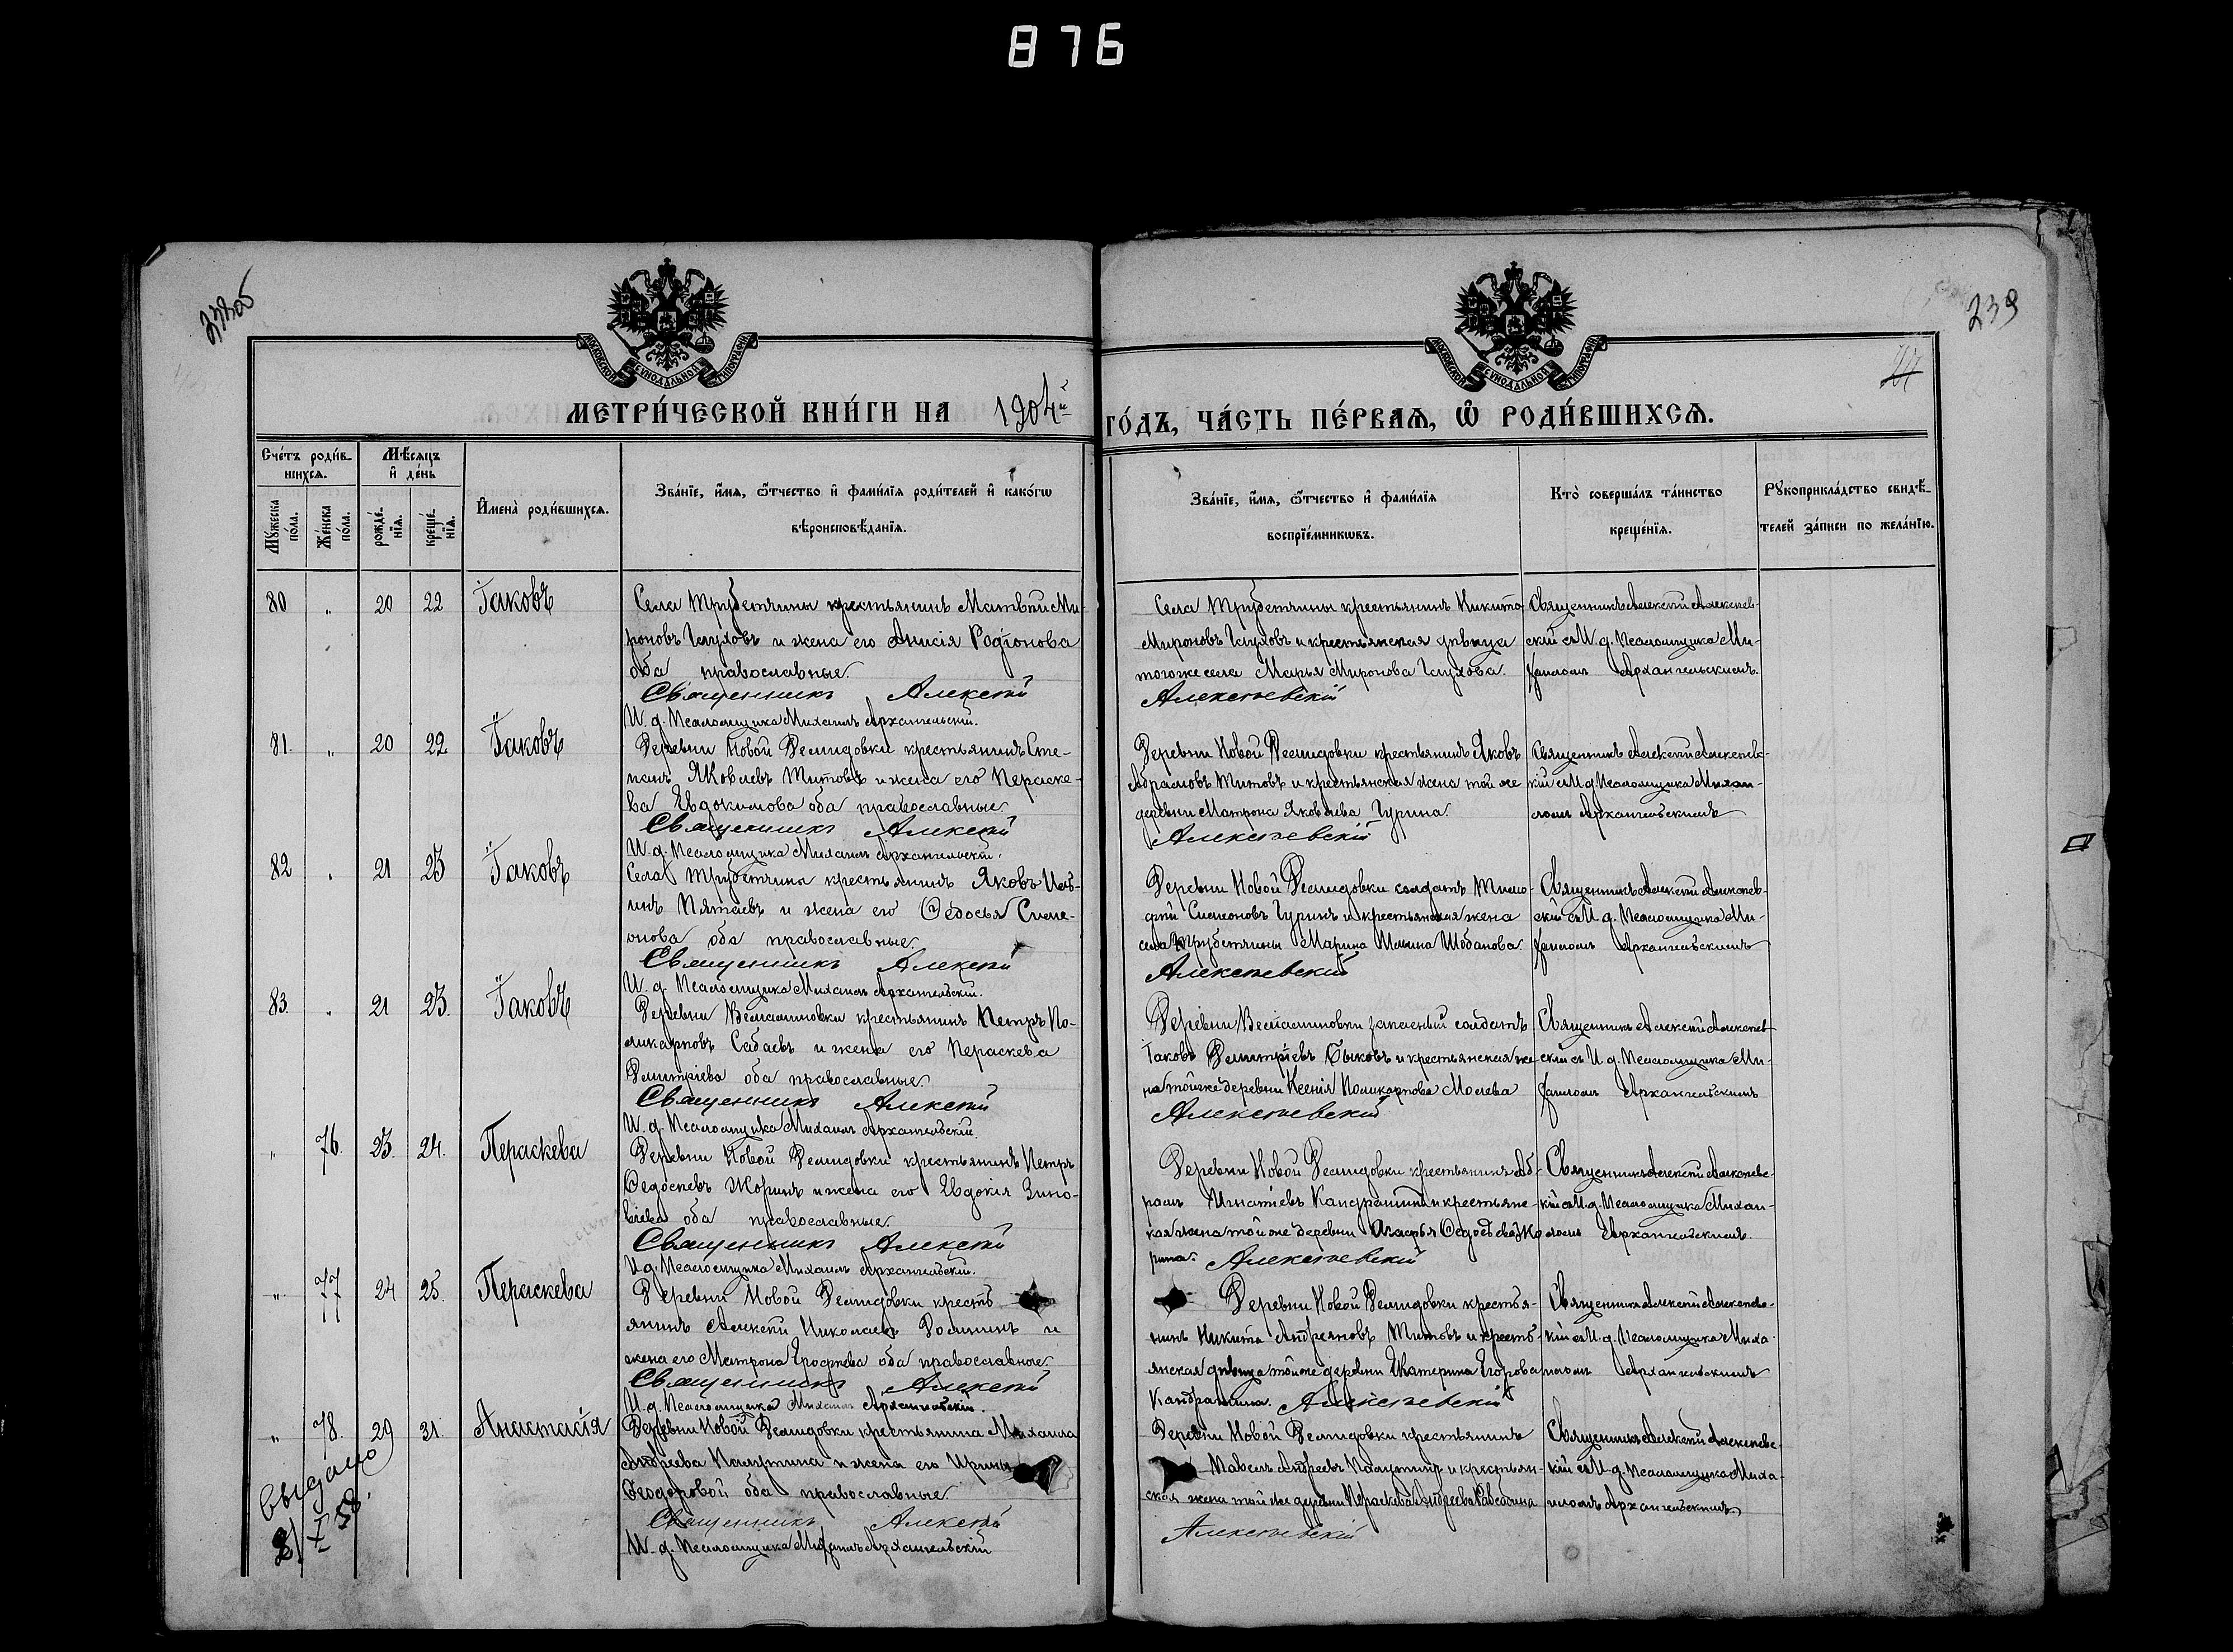 876
238об
239
МОСКОВСКОЙ СѴНОДАЛЬНОЙ ТИПОГРАФІИ
МОСКОВСКОЙ СѴНОДАЛЬНОЙ ТИПОГРАФІИ
МЕТРИ́ЧЕСКОЙ КНИ́ГИ НА 1904й ГО́ДЪ, ЧА́СТЬ ПЕ́РВАѦ, Ѡ҆ РОДИ́ВШИХСѦ.
Сче́тъ роди́в-
шихсѧ.
Мѣ́сяцъ
и҆ де́нь
Мꙋ́жеска
по́ла.
Же́нска
по́ла.
рожде́-
нїѧ.
креще́-
нїѧ.
И҆мена̀ роди́вшихсѧ.
Зва́нїе, и҆́мѧ, ѻ҆́тчество и҆ фами́лїѧ роди́телей и҆ како́гѡ
вѣроисповѣ́данїѧ.
Зва́нїе, и҆́мѧ, ѻ҆́тчество и҆ фами́лїѧ
воспрїе́мникѡвъ.
Кто̀ соверша́лъ та́инство
креще́нїѧ.
Рꙋкоприкла́дство свидѣ́-
телей за́писи по жела́нїю.
80 " 20 22 Іаковъ
Села Трубетчины крестьянинъ Матвѣй Ми-
роновъ Глуховъ и жена его Анисія Родіонова
оба православные.
Священникъ Алексѣй
И. д. Псаломщика Михаилъ Архангельскій.
Села Трубетчины крестьянинъ Никита
Мироновъ Глуховъ и крестьянская дѣвица
тогоже села Марья Миронова Глухова.
Алексѣевскій
Священникъ Алексѣй Алексѣев-
скій съ И. д. Псаломщика Ми-
хаиломъ Архангельскимъ.
81. " 20 22 Іаковъ
Деревни Новой Демидовки крестьянинъ Сте-
панъ Яковлевъ Титовъ и жена его Параске-
ва Евдокимова оба православные.
Священникъ Алексѣй
И. д. Псаломщика Михаилъ Архангельскій.
Деревни Новой Демидовки крестьянинъ Яковъ
Абрамовъ Титовъ и крестьянская жена той же
деревни Матрона Яковлева Гурина.
Алексѣевскій
Священникъ Алексѣй Алексѣевс-
кій съ И. д. Псаломщика Михаи-
ломъ Архангельскимъ
82 " 21 23 Іаковъ
Села Трубетчины крестьянинъ Яковъ Иль-
инъ Пятаевъ и жена его Ѳедосья Симе-
онова оба православные.
Священникъ Алексѣй
И. д. Псаломщика Михаилъ Архангельскій.
Деревни Новой Демидовки солдатъ Тимо-
фей Симеоновъ Гуринъ и крестьянская жена
села Трубетчины Марина Ильина Шабанова.
Алексѣевскій
Священникъ Алексѣй Алексѣев-
скій съ И. д. Псаломщика Ми-
хаиломъ Архангельскимъ
83. " 21 23. Іаковъ
Деревни Вельаминовки крестьянинъ Петръ По-
ликарповъ Сабаевъ и жена его Параскева
Димитріева оба православные.
Священникъ Алексѣй
И. д. Псаломщика Михаилъ Архангельскій.
Деревни Вельаминовки запасный солдатъ
Іаковъ Димитріевъ Быковъ и крестьянская же-
на тойже деревни Ксенія Поликарпова
Алексѣевскій
Священникъ Алексѣй Алексѣев-
скій съ И. д. Псаломщика Ми-
хаиломъ Архангельскимъ
" 76. 23. 24. Пераскева
Деревни Новой Демидовки крестьянинъ Петръ
Ѳедосѣевъ Жоринъ и жена его Евдокія Зино-
віева оба православные.
Священникъ Алексѣй
И. д. Псаломщика Михаилъ Архангельскій.
Деревни Новой Демидовки крестьянинъ Аб-
рамъ Игнатіевъ Кандрашинъ и крестьянс-
кая жена той же деревни Марья Ѳедосѣева Жо-
рина. Алексѣевскій
Священникъ Алексѣй Алексѣевс-
кій съ И. д. Псаломщика Михаи-
ломъ Архангельскимъ.
" 77 24 25. Пераскева
Деревни Новой Демидовки кресть-
янинъ Алексѣй Николаевъ и
жена его Матрона Ерофѣева оба православные.
Священникъ Алексѣй
И. д. Псаломщика Михаилъ Архангельскій.
Деревни Новой Демидовки крестья-
нинъ Никита Андреяновъ Титовъ и кресть-
янская дѣвица той же деревни Екатерина Егорова
Кандрашина. Алексѣевскій
Священникъ Алексѣй Алексѣевс-
кій съ И. д. Псаломщика Миха-
иломъ Архангельскимъ
" 78. 29 31. Анастасія
Деревни Новой Демидовки крестьянина Михаила
Андреева Палутина и жена его Ирины
Ѳеодоровой оба православные.
Священникъ Алексѣй
И. д. Псаломщика Михаилъ Архангельскій
Деревни Новой Демидовки крестьянинъ
Андреевъ Палутинъ и крестьян-
ская жена той же деревни Пераскева Андреева
Алексѣевскій
Священникъ Алексѣй Алексѣевс-
кій съ И. д. Псаломщика Миха-
иломъ Архангельскимъ
Выдано